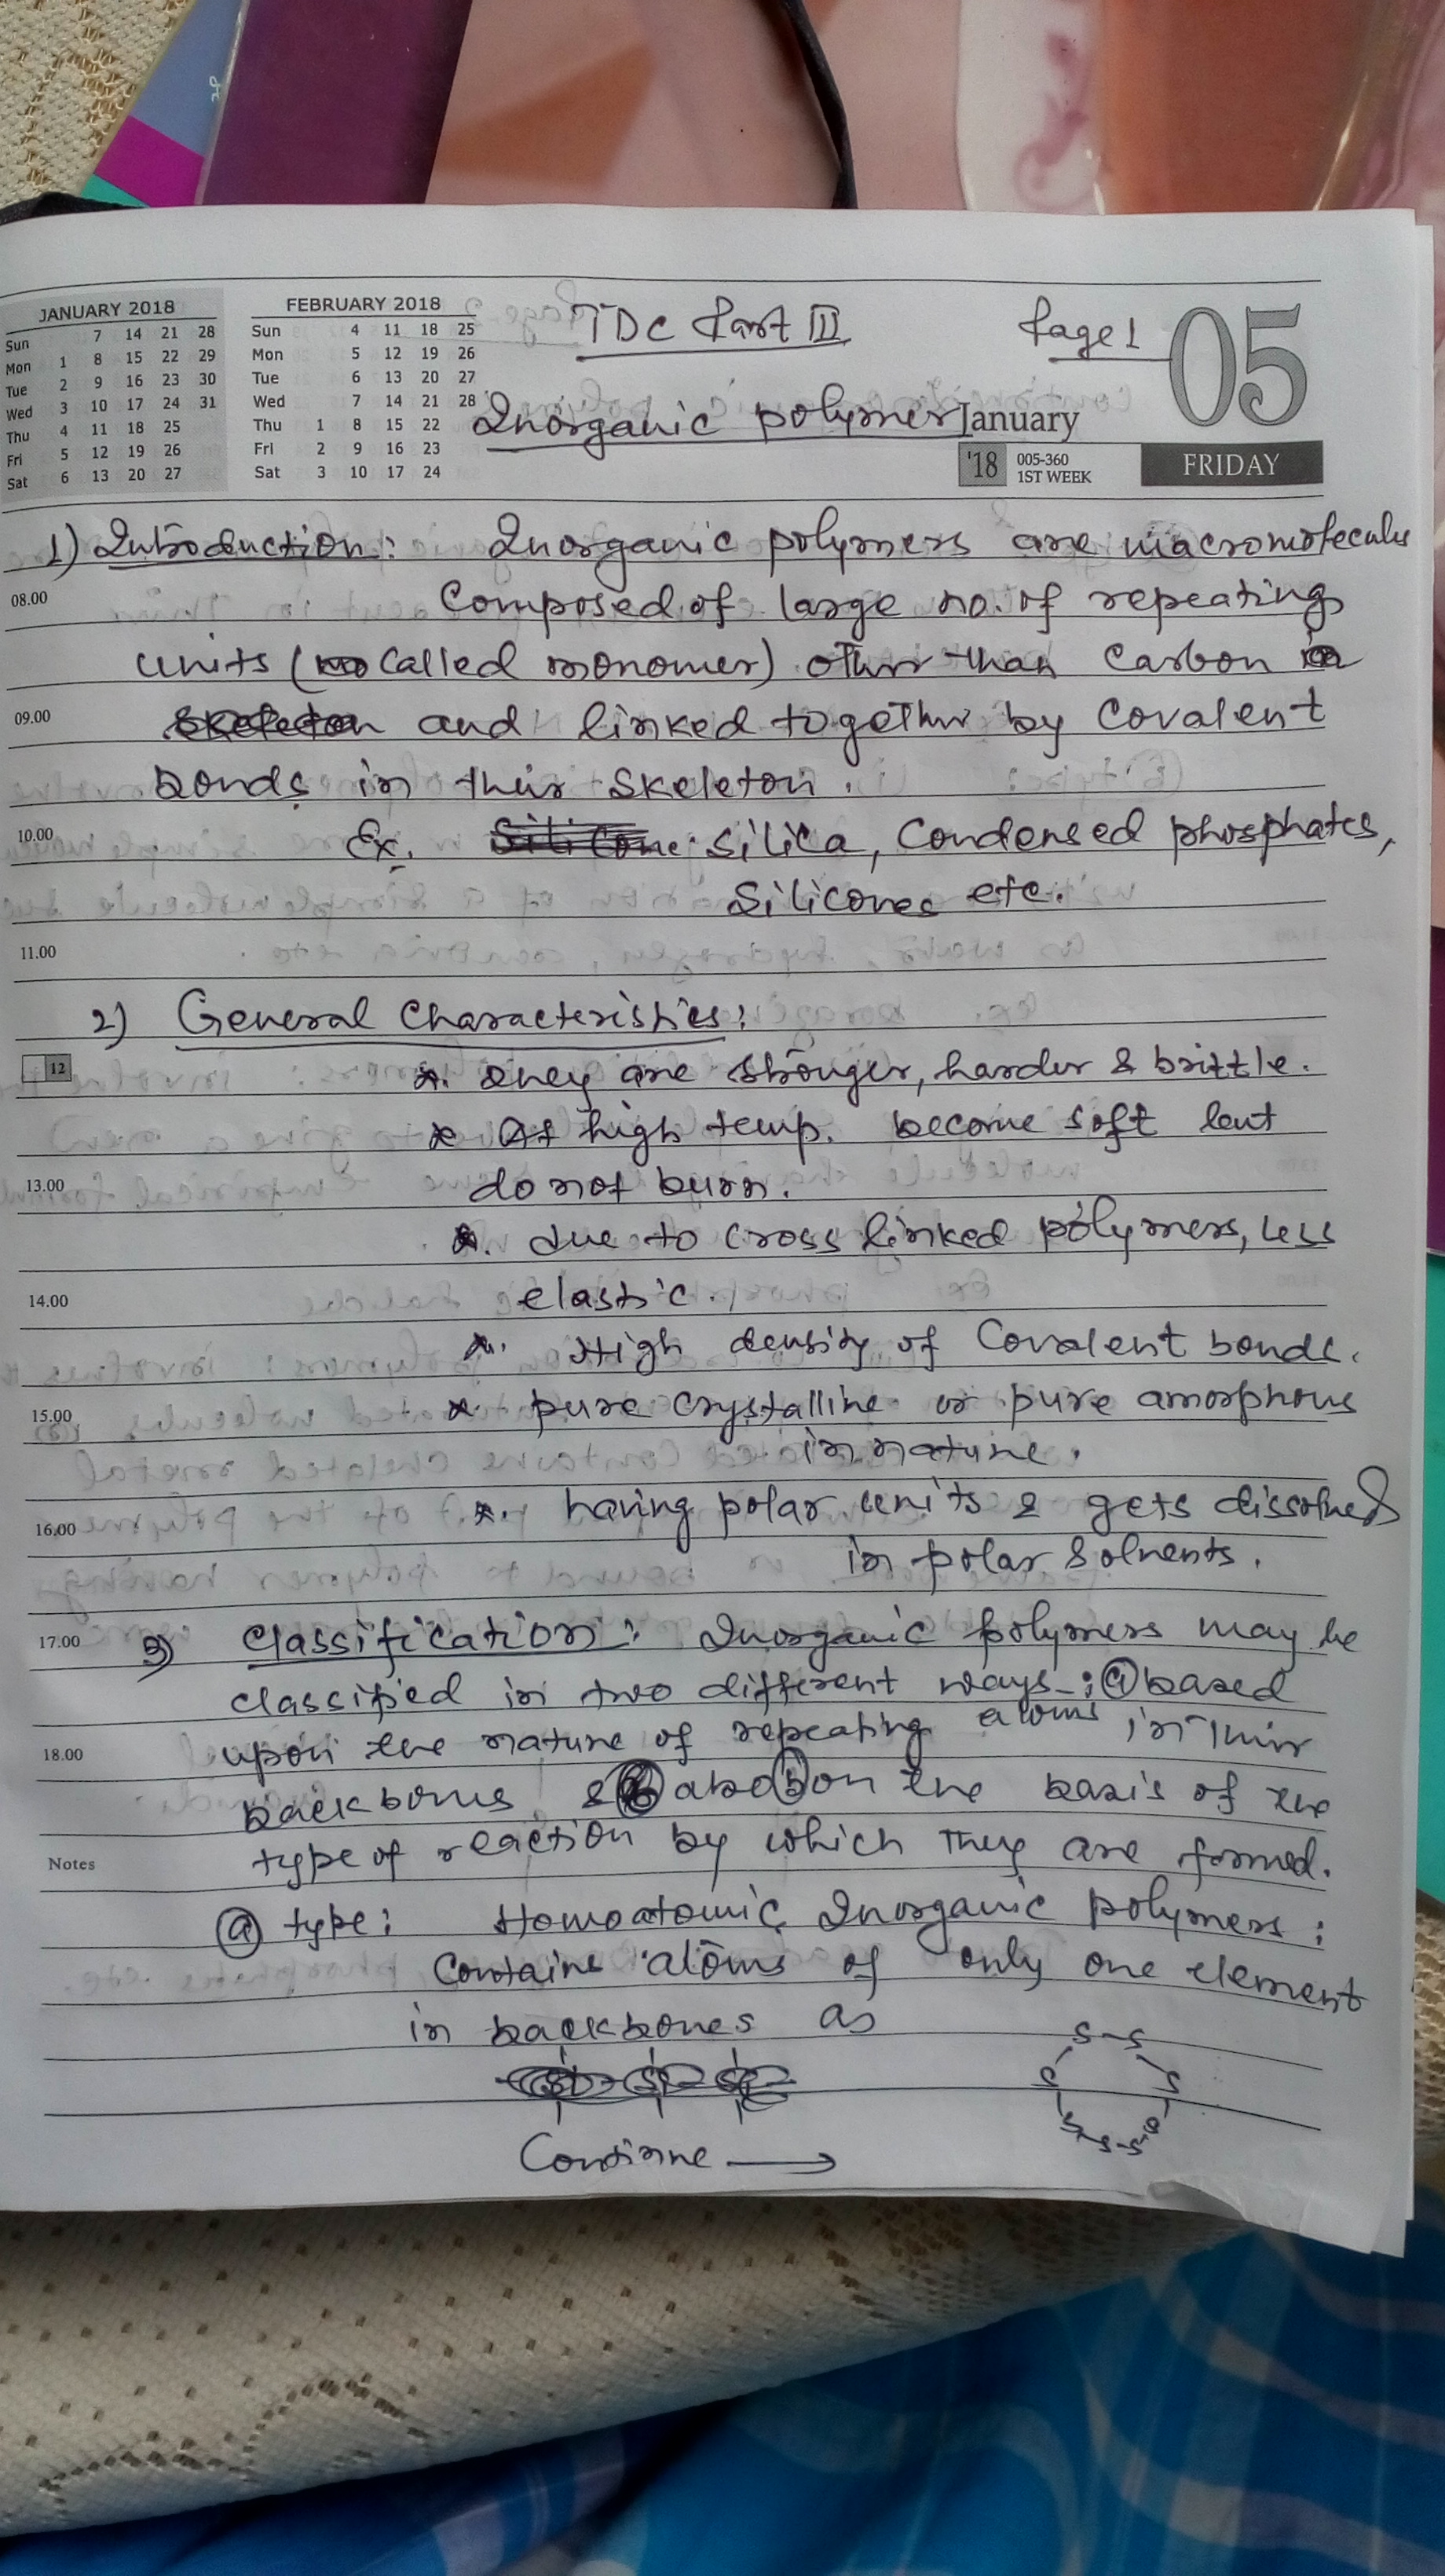 JANUARY 2018
Sun 7 14 21 28
Mon 1 8 15 22 29
Tue 2 9 16 23 30
Wed 3 10 17 24 31
Thu 4 11 18 25
Fri 5 12 19 26
Sat 6 13 20 27
FEBRUARY 2018
Sun 4 11 18 25
Mon 5 12 19 26
Tue 6 13 20 27
Wed 7 14 21 28
Thu 1 8 15 22
Fri 2 9 16 23
Sat 3 10 17 24
TDC Part III
Page 1
05
Inorganic polymer
January
'18 005-360
1ST WEEK
FRIDAY
1) Introduction: Inorganic polymers are macromolecules
08.00
Composed of large no. of repeating
units (called monomer) other than Carbon
09.00
and linked together by Covalent
bonds in their skeleton.
10.00
Ex. Silica, Condensed phosphates,
Silicones etc.
11.00
2) General Characteristics:
12
*. They are stronger, harder & brittle.
* At high temp. become soft but
13.00
do not burn.
*. due to cross linked polymers, less
14.00
elastic.
*. High density of Covalent bonds.
15.00
*. pure crystalline or pure amorphous
in nature.
*. having polar units & gets dissolved
16.00
in polar Solvents.
17.00
3) Classification: Inorganic polymers may be
classified in two different ways-: (a) based
upon the nature of repeating atoms in their
18.00
backbones & also (b) on the basis of the
type of reaction by which they are formed.
Notes
(a) type: Homoatomic Inorganic polymers:
Contains atoms of only one element
in backbones as
S-S
S S
S S
S-S
Continue →